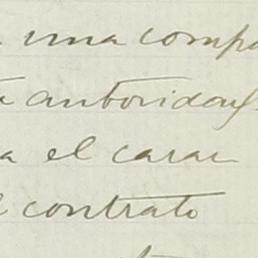 una comp
autoridad
a el carac
contrato